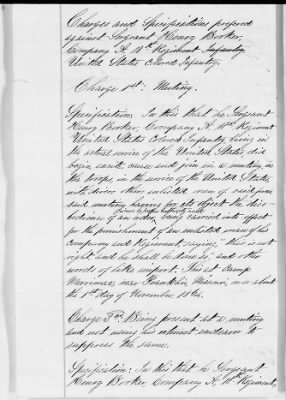 Charges and Specifications prefered
against Sergeant Henry Booker,
Company A, Regiment Infantry
United States Colored Infantry.
Charge 1st: Mutiny.
Specification: In this that he Sergeant
Henry Booker, Company A, Regiment
United States Colored Infantry being in
the actual service of the United States, did
begin, excite, cause and join in a mutiny in
the troops in the service of the United States,
with divers other enlisted men of said
said mutiny having for its object the diso-
bedience of an order, being carried into effect
for the punishment of an enlisted man of his
company and Regiment, saying, this is not
right and he shall be done so, and other
words of like import. This at Camp
near Franklin, Missouri, on or about
the 1st day of November 1864.
Charge 2nd: Being present at a mutiny
and not using his utmost endeavor to
suppress the same.
Specification: In this that he Sergeant
Henry Booker, Company A, Regiment,